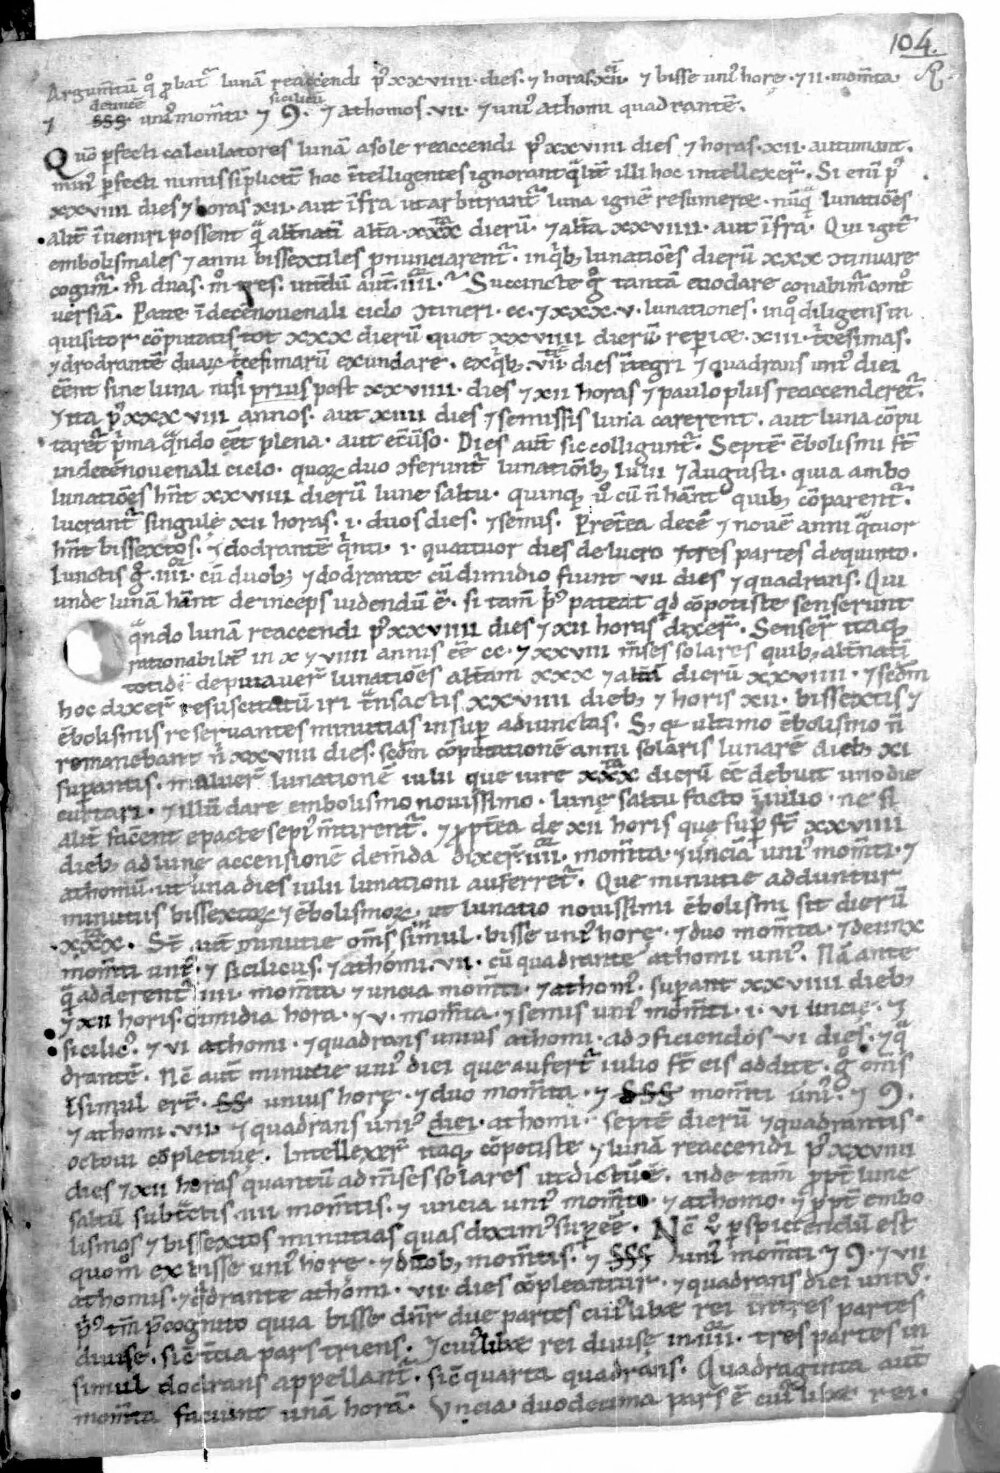 104.
Argumtū qͦ ꝓbatᷣ lunā reaccendi pꝰ xxviiii · dies · ⁊ horas xii · ⁊ bisse uniꝰ hore · ⁊ ii · momta
deunce sicilicū
⁊ sss uniꝰ momti ⁊ 9 · ⁊ athomos · vii · ⁊ uniꝰ athomi quadrantē ·
Quō ꝑfecti calculatores lunā a sole reaccendi pꝰ xxviiii dies ⁊ horas · xii · autumant ·
minꝰ ꝑfecti nimis siplicit hoc intelligentes ignorant qlit illi hoc intellexerᷣ · Si eni pꝰ
xxviiii dies ⁊ horas xii · aut ifra ut arbitrantᷣ luna ignē resumeret · nūq lunatiōes
alit iueniri possent q altnati alta · xxx dierū · ⁊ alta xxviiii · aut ifra · Qui igitᷣ
embolismales ⁊ anni bissextiles pnunciarentᷣ · in qb; lunatiōes dierū xxx ↄtinuare
cogimᷣ · mͦ duas · mͦ tres · Succincte gͦ tantā enodare conabimᷣ contͦ
uersiā · Patet i decēnouenali ciclo ↄtineri · cc · ⁊ xxx · v · lunationes · in qͦ diligens in
quisitor cōputatis tot xxx dierū quot xxviiii dierū reperiet · xiii · tcesimas ·
⁊ dodrantē duaꝝ tcesimarū exundare · ex qb; · vii · dies itegri ⁊ quadrans uniꝰ diei
eēnt sine luna nisi prius post xxviiii · dies ⁊ xii horas ⁊ paulo plus reaccenderetᷣ ·
⁊ ita pꝰ xxxviii annos · aut xiiii dies ⁊ semissis luna carerent · aut luna cōpu
taretᷣ pma qndo eēt plena · aut ecūso · Dies aut sic colliguntᷣ · Septē ebolismi st
in decēnouenali ciclo · quoꝝ duo ↄferuntᷣ lunatiōib; Iulii ⁊ Augusti · quia ambo
lunatiōes hnt xxviiii dierū lune saltu · quinq; uͦ cū n hant quib; cōparentᷣ ·
lucrantᷣ singulę xii horas · i · duos dies · ⁊ semis · Pretea decē ⁊ nouē anni qtuor
hnt bissextos · ⁊ dodrantē qnti · i · quattuor dies de lucro ⁊ tres partes de quinto ·
Iunctis gͦ · iiii · cū duob; ⁊ dodrante cū dimidio fiunt vii dies ⁊ quadrans · Qui
unde lunā hant deinceps uidendū ē · si tam pꝰ pateat qd cōpotiste senserunt
qndo lunā reaccendi pꝰ xxviiii dies ⁊ xii horas dixerᷣ · Senserᷣ itaq;
rationabilit in x ⁊ viiii annis eē cc · ⁊ xxviii mses solares quib; altnati
totidē deputauerᷣ lunatiōes altam xxx ⁊ altā dierū xxviiii · ⁊ sedm
hoc dixerᷣ resuscitatū iri tnsactis xxviiii dieb; ⁊ horis xii · bissextis ⁊
ebolismis reseruantes minutias insuꝑ adiunctas · S; qr ultimo ebolismo n
romanebant n xxviiii dies · sedm cōputationē anni solaris lunarē dieb; xi
suꝑantis · maluerᷣ lunationē iulii que iure xxx dierū eē debuit uno die
curtari · ⁊ illū dare embolismo nouissimo · lunę saltu facto i iulio · ne si
alit facent epacte sepiꝰ mtirentᷣ · ⁊ ꝓptea de xii horis quę suꝑ st xxviiii
dieb; ad lunę accensionē demda dixerᷣ iiii · momta · ⁊ unciā uniꝰ momti · ⁊
athomū · ut una dies iulii lunationi auferretᷣ · Que minutie adduntur
minutiis bissextoꝝ ⁊ ebolismoꝝ · ut lunatio nouissimi ebolismi sit dierū
xxx · St aut minutie oms simul · bisse uniꝰ horę · ⁊ duo momta · ⁊ deunx
momti uniꝰ · ⁊ sicilicus · ⁊ athomi · vii · cū quadrante athomi uniꝰ · Nā ante
q adderentᷣ iiii · momta ⁊ uncia momti · ⁊ athomꝰ · suꝑant xxviiii dieb;
⁊ xii horis · dimidia hora · ⁊ v · momta · ⁊ semis uniꝰ momti · i · vi uncię · ⁊
sicilicꝰ · ⁊ vi athomi · ⁊ quadrans unius athomi · ad ↄficiendos vi dies · ⁊ q
drantē · Nē aut minutie uniꝰ diei que aufertᷣ iulio st eis addite · gͦ oms
simul ert · ss unius horę · ⁊ duo momta · ⁊ sss momti uniꝰ · ⁊ 9 ·
⁊ athomi · vii · ⁊ quadrans uniꝰ diei · athomi · septē dierū ⁊ quadrantis ·
octoui cōpletiuę · Intellexerᷣ itaq; cōpotiste ⁊ lunā reaccendi pꝰ xxviiii
dies ⁊ xii horas quantū ad mses solares ut dictū ē · inde tam ꝓpt lune
saltū subtctis · iiii momtis · ⁊ uncia uniꝰ momto · ⁊ athomo · ⁊ ꝓpt embo
lismos ⁊ bissextos minutias quas diximꝰ suꝑeē · Nē uͦ ꝑspiciendū est
quom ex bisse uniꝰ horę · ⁊ duob; momtis · ⁊ sss uniꝰ momti ⁊ 9 · ⁊ vii
athomis · ⁊ qdrante athomi · vii · dies cōpleantur · ⁊ quadrans diei uniꝰ ·
pꝰ tm pcognito quia bisse dnr due partes cuiꝰlibet rei in tres partes
diuise · sic tcia pars triens · ⁊ cuiꝰlibet rei diuisę in iiii · tres partes in
simul dodrans appellantᷣ · sic quarta quadrans · Quadraginta aut
momta faciunt unā horā · Uncia · duodecima pars ē cuiꝰlibet rei ·